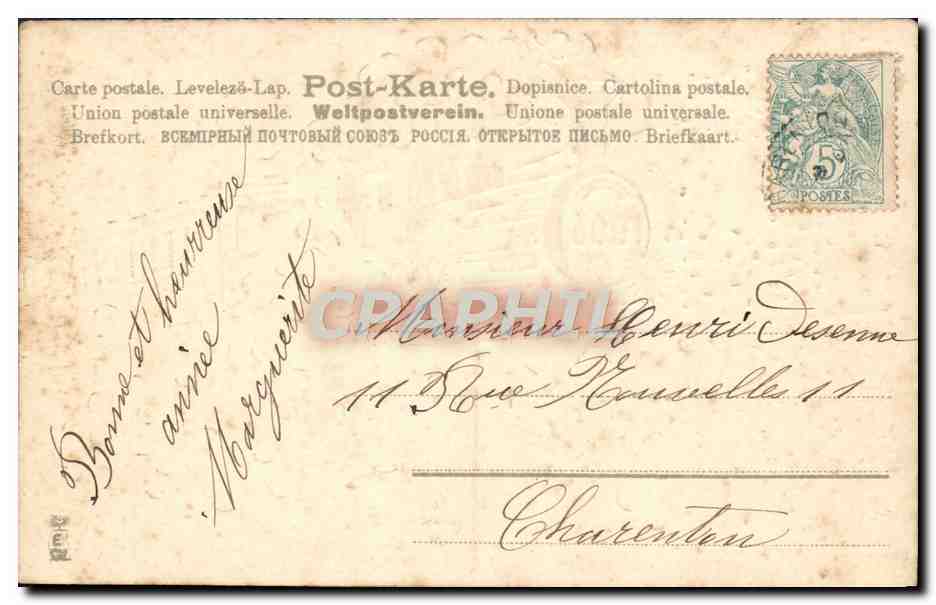 Carte postale. Levelező-Lap. Post-Karte. Dopisnice. Cartolina postale.
Union postale universelle. Weltpostverein. Unione postale universale.
Brefkort. ВСЕМІРНЫЙ ПОЧТОВЫЙ СОЮЗЪ РОССІЯ. ОТКРЫТОЕ ПИСЬМО. Briefkaart.
5
POSTES
Bonne et heurreuse
année
Marguerite
CPAPHIL
Monsieur Henri Desenne
11 Rue Nouvelles 11
Charenton